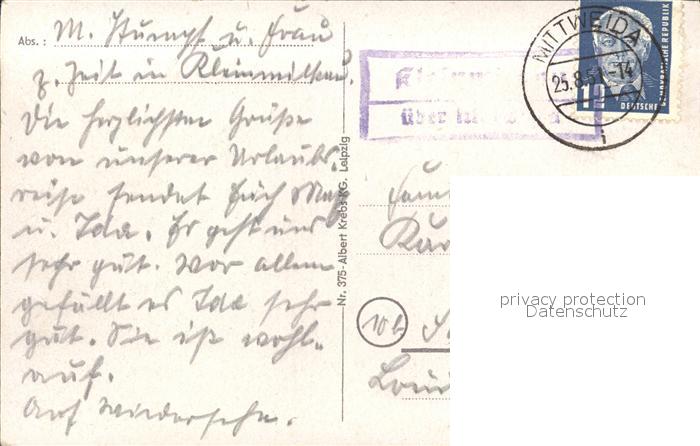 Abs.: M. Stumpf u. Frau
z. Zeit in Kleinmilkau.
Die herzlichsten Grüße
von unserer Urlaubs-
reise sendet Euch Max
u. Ida. Es geht uns
sehr gut. Vor allem
gefällt es Ida sehr
gut. Sie ist wohl-
auf.
Auf Wiedersehn.
Nr. 375-Albert Krebs KG. Leipzig
über
MITTWEIDA
25.8.51-14
i
DEUTSCHE
DEMOKRATISCHE REPUBLIK
Fam
10b
privacy protection
Datenschutz